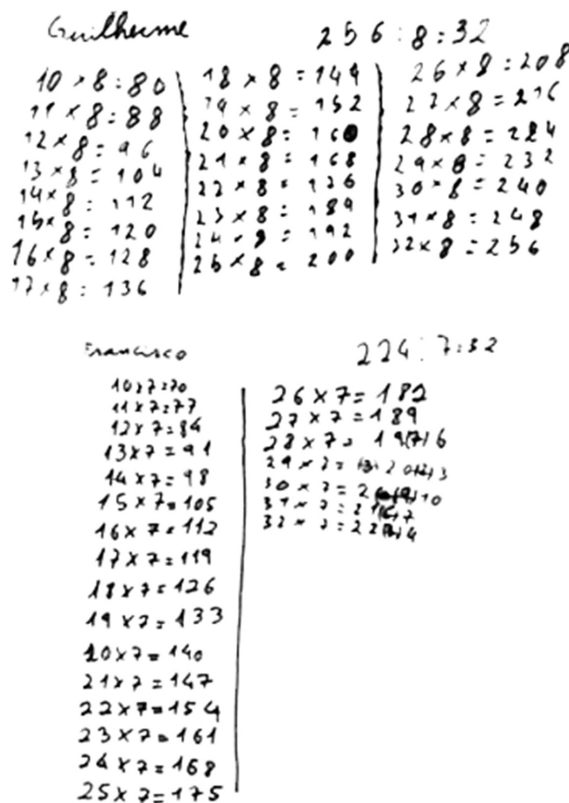 Guilherme
256:8:32
10 × 8:80
11 × 8:88
12 × 8 = 96
13 × 8 = 104
14 × 8 : 112
15 × 8 : 120
16 × 8 : 128
17 × 8 : 136
18 × 8 = 144
19 × 8 : 152
20 × 8 = 160
21 × 8 = 168
22 × 8 : 176
23 × 8 : 184
24 × 8 = 192
25 × 8 = 200
26 × 8 = 208
27 × 8 = 216
28 × 8 = 224
29 × 8 = 232
30 × 8 = 240
31 × 8 = 248
32 × 8 = 256
Francisco
224:7:32
10×7=70
11×7=77
12×7=84
13×7=91
14×7=98
15×7=105
16×7=112
17×7=119
18×7=126
19×7=133
20×7=140
21×7=147
22×7=154
23×7=161
24×7=168
25×7=175
26×7=182
27×7=189
28×7= 19(7)6
29×7=
30×7=
31×7=
32×7=